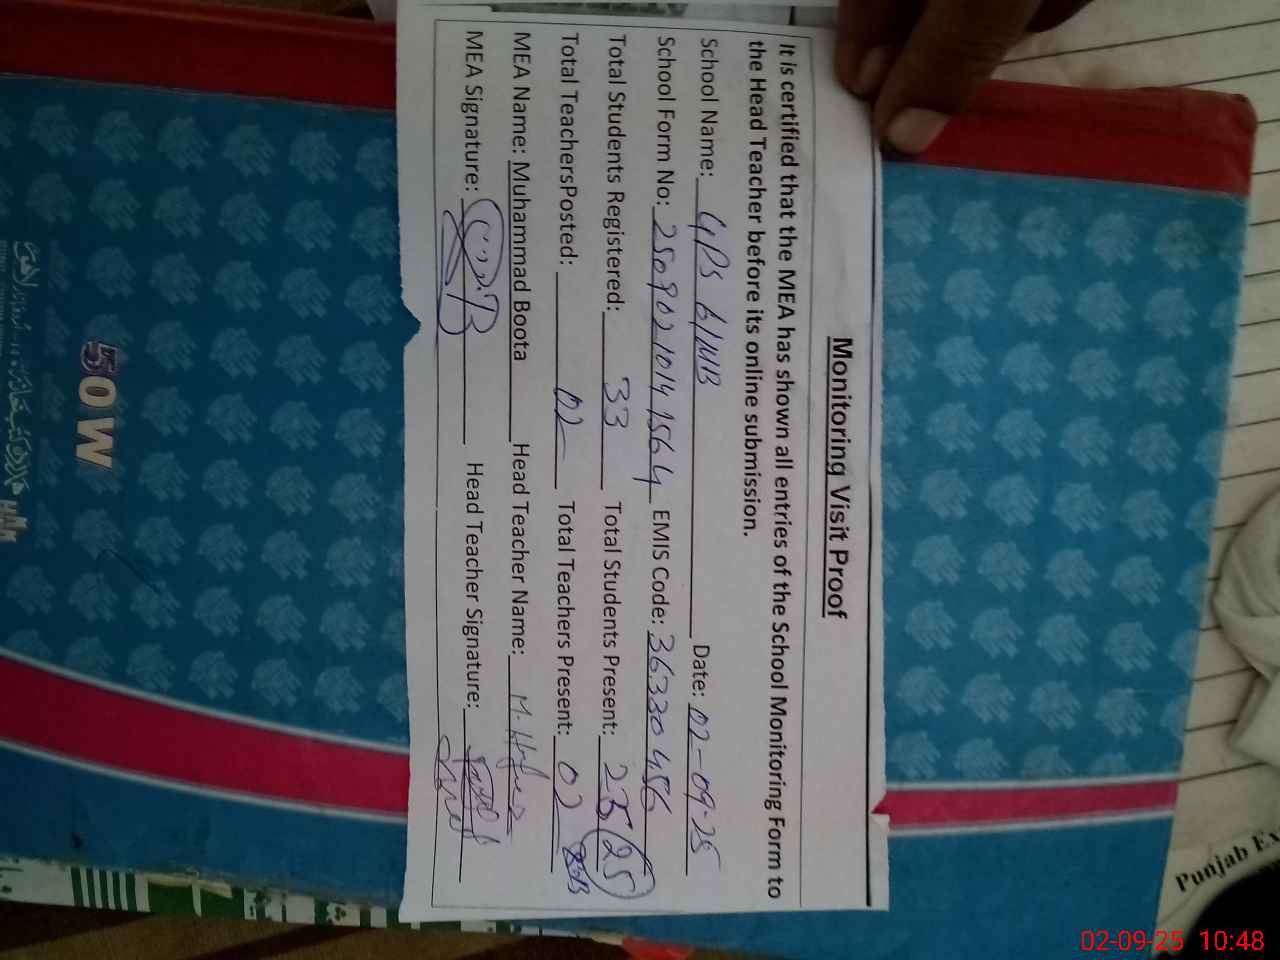 Monitoring Visit Proof
It is certified that the MEA has shown all entries of the School Monitoring Form to
the Head Teacher before its online submission.
School Name: GPS 6/11B Date: 02-09-25
School Form No: 2509021014 1564 EMIS Code: 36330 456
Total Students Registered: 33 Total Students Present: 25 (25)
Total TeachersPosted: 02 Total Teachers Present: 02
MEA Name: Muhammad Boota Head Teacher Name: M.
MEA Signature: Head Teacher Signature:
50 W
Punjab Ex
02-09-25 10:48